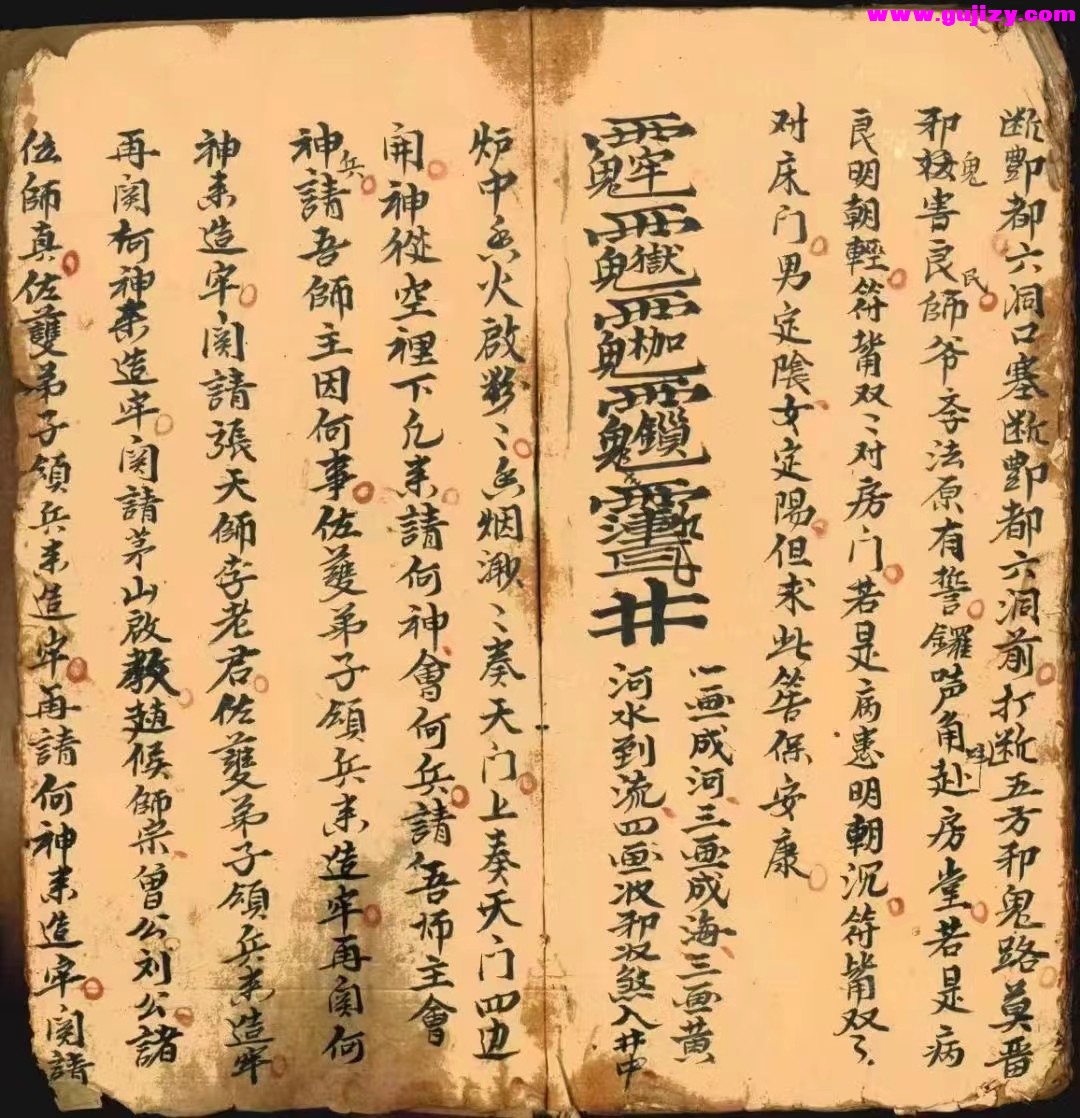 www.gujizy.com
断酆都六洞口塞断酆都六洞前打断五方邪鬼路莫晋
邪鬼害良民師爷斉法原有誓鑼声角赴房堂若是病
良明朝輕符筲双〻对房门若是病患明朝沉符筲双〻
对床门男定陰女定陽但求此筶保安康
牢
獄
枷
鎖
井
一画成河二画成海三画黄
河水到流四画收邪收煞入井中
炉中香火啟彩〻香烟渺〻奏天门上奏天门四边
開神從空裡下凡来請何神會何兵請吾师主會
神兵請吾師主因何事佐䕶弟子領兵来造牢再関何
神来造牢関請張天師李老君佐䕶弟子領兵来造牢
再関何神来造牢関請茅山啟教趙候師宗曾公刘公諸
位師真佐䕶弟子領兵来造牢再請何神来造牢関請